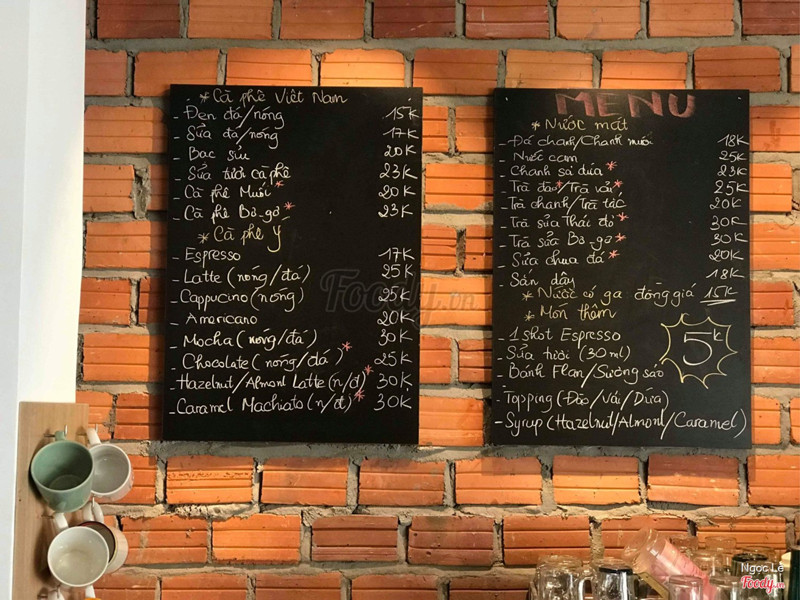 * Cà phê Việt Nam
- Đen đá/nóng 15K
- Sữa đá/nóng 17K
- Bạc sỉu 20K
- Sữa tươi cà phê 23K
- Cà phê Muối * 20K
- Cà phê Bơ gờ * 23K
* Cà phê Ý
- Espresso 17K
- Latte (nóng/đá) 25K
- Cappucino (nóng) 25K
- Americano 20K
- Mocha (nóng/đá) 30K
- Chocolate (nóng/đá) * 25K
- Hazelnut/Almont Latte (n/đ) * 30K
- Caramel Machiato (n/đ) * 30K
MENU
* Nước mát
- Đá chanh/Chanh muối 18K
- Nước cam 25K
- Chanh sả dứa * 23K
- Trà đào */Trà vải * 25K
- Trà chanh/Trà tắc 20K
- Trà sữa Thái đỏ * 30K
- Trà sữa Bơ gờ * 30K
- Sữa chua đá * 20K
- Sắn dây 18K
* Nước có ga đồng giá 15K
* Món thêm
- 1 shot Espresso
- Sữa tươi (30 ml)
- Bánh Flan/Sương sáo
5K
- Topping (Đào/Vải/Dứa)
- Syrup (Hazelnut/Almont/Caramel)
Foody.vn
Ngọc Lê
Foody.vn